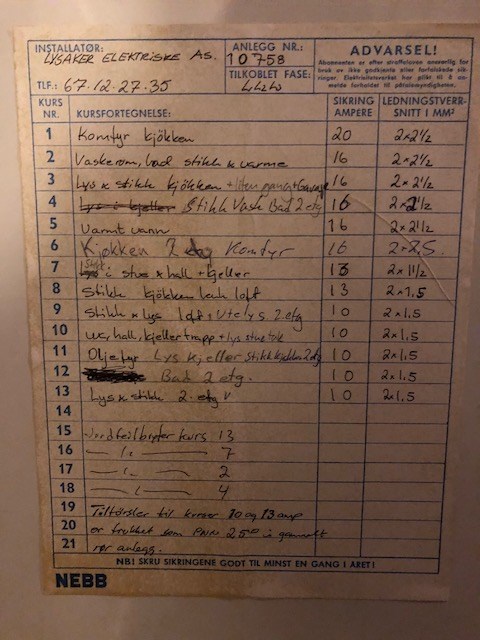 INSTALLATØR:
LYSAKER ELEKTRISKE AS.
TLF.: 67-12-27-35
ANLEGG NR.:
10758
TILKOBLET FASE:
ADVARSEL!
Abonnenten er efter straffeloven ansvarlig for
bruk av ikke godkjente eller forfalskede sik-
ringer. Elektrisitetsverket har plikt til å an-
melde forholdet til påtalemyndigheten.
KURS NR. KURSFORTEGNELSE: SIKRING AMPERE LEDNINGSTVERR-SNITT I MM²
1 Komfyr kjökken 20 2x2½
2 Vaskerom, bad stikk x varme 16 2x2½
3 Lys x stikk kjökken + liten gang + Garage 16 2x2½
4 Lys i kjeller Stikk Vask Bad 2 etg 16 2x2½
5 Varmt vann 16 2x2½
6 Kjøkken 2 etg Komfyr 16 2x2.5
7 i stue x hall + kjeller 13 2x1½
8 Stikk kjökken loft 13 2x1.5
9 Stikk x lys loft + Utelys 2.etg 10 2x1.5
10 wc, hall, kjellertrapp + lys stue 10 2x1.5
11 Oljefyr Lys kjeller Stikk kjøkken 2 etg 10 2x1.5
12 Bad 2 etg. 10 2x1.5
13 Lys x stikk 2. etg 10 2x1.5
14
15 Jordfeilbryter kurs 13
16 — 〃 — 7
17 — 〃 — 2
18 — 〃 — 4
19 Tilförsler til kurser 10 og 13 amp
20 er trukket som PN 2,5 i gammelt
21 rör anlegg.
NB! SKRU SIKRINGENE GODT TIL MINST EN GANG I ÅRET!
NEBB